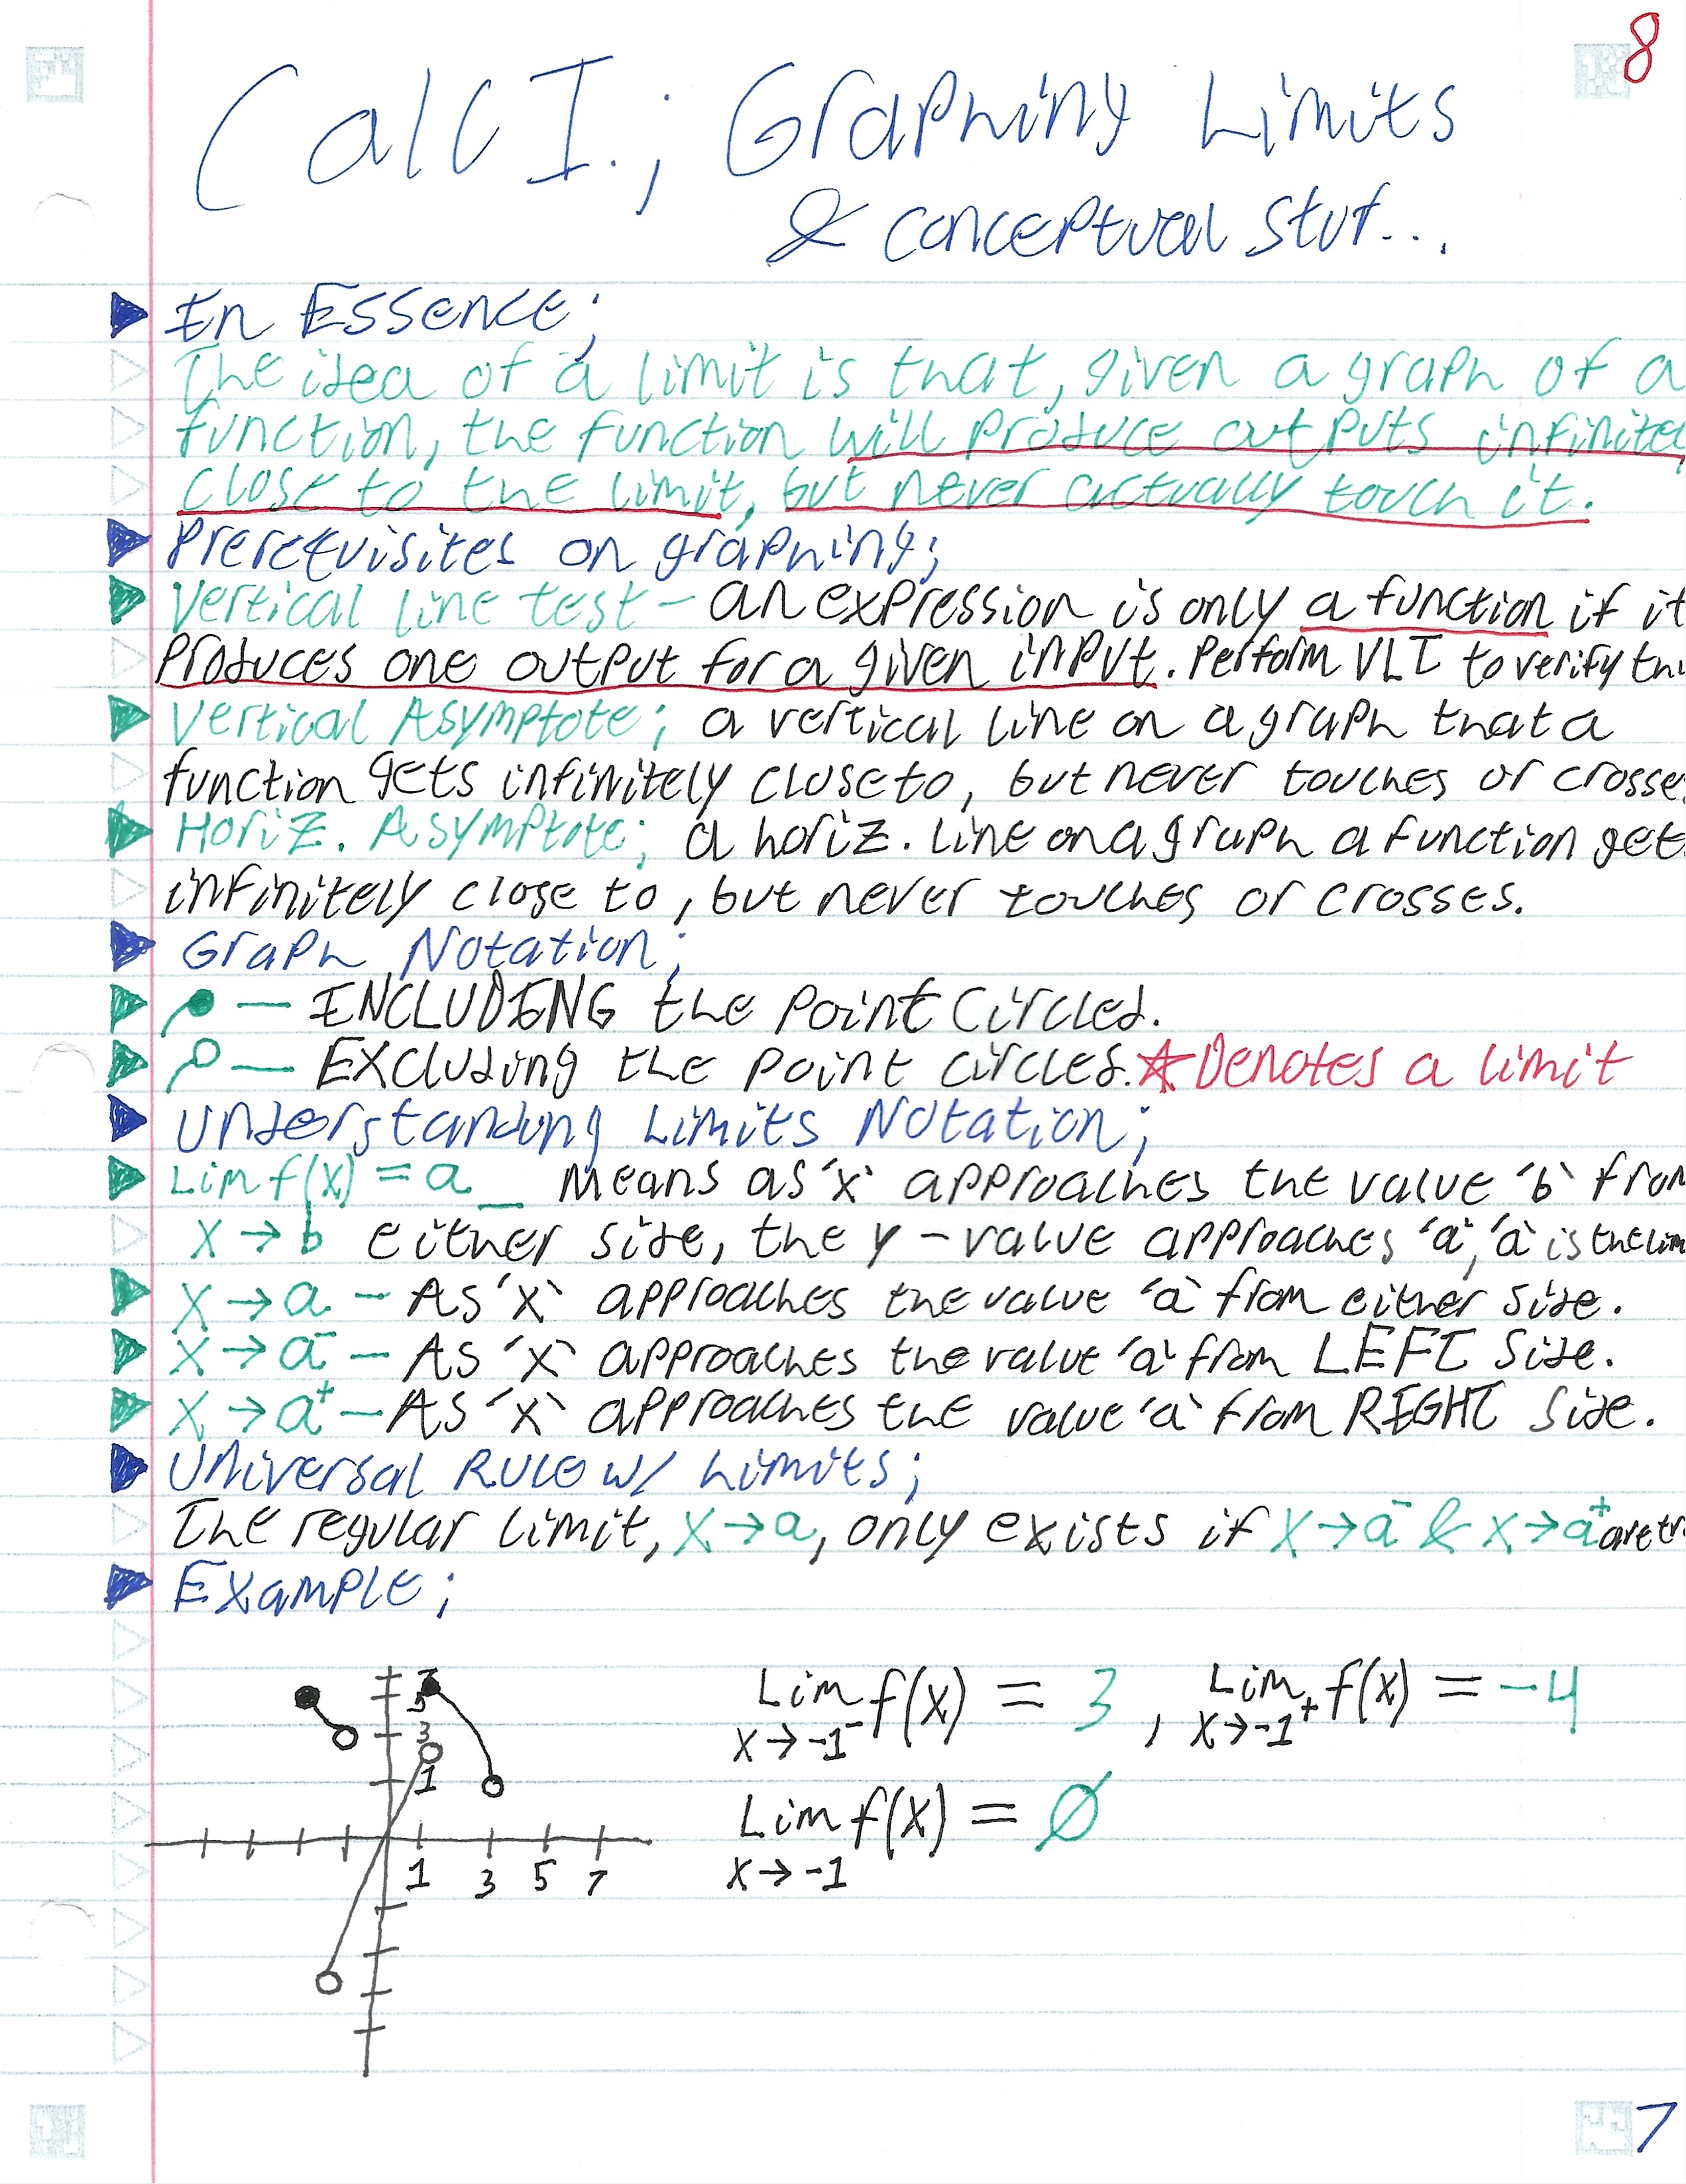 8
Calc I.; Graphing Limits
& conceptual stuf...
In Essence;
The idea of a limit is that, given a graph of a
function, the function will produce outputs infinite
close to the limit, but never actually touch it.
Prerequisites on graphing;
Vertical line test - an expression is only a function if it
produces one output for a given input. Perform VLT to verify thi
Vertical Asymptote; a vertical line on a graph that a
function gets infinitely close to, but never touches or crosse
Horiz. Asymptote; a horiz. line on a graph a function get
infinitely close to, but never touches or crosses.
Graph Notation;
— INCLUDING the point circled.
— Excluding the point circled. ☆Denotes a limit
Understanding Limits Notation;
Lim f(x) = a _ Means as 'x' approaches the value 'b' from
x → b either side, the y-value approaches 'a', 'a' is the lim
x → a - As 'x' approaches the value 'a' from either side.
x → a⁻ - As 'x' approaches the value 'a' from LEFT side.
x → a⁺ - As 'x' approaches the value 'a' from RIGHT side.
Universal Rule w/ Limits;
The regular limit, x → a, only exists if x → a⁻ & x → a⁺ are tr
Example;
Lim f(x) = 3 , Lim f(x) = -4
x → -1⁻ x → -1⁺
Lim f(x) = ∅
x → -1
7
5
3
1
1 3 5 7
7